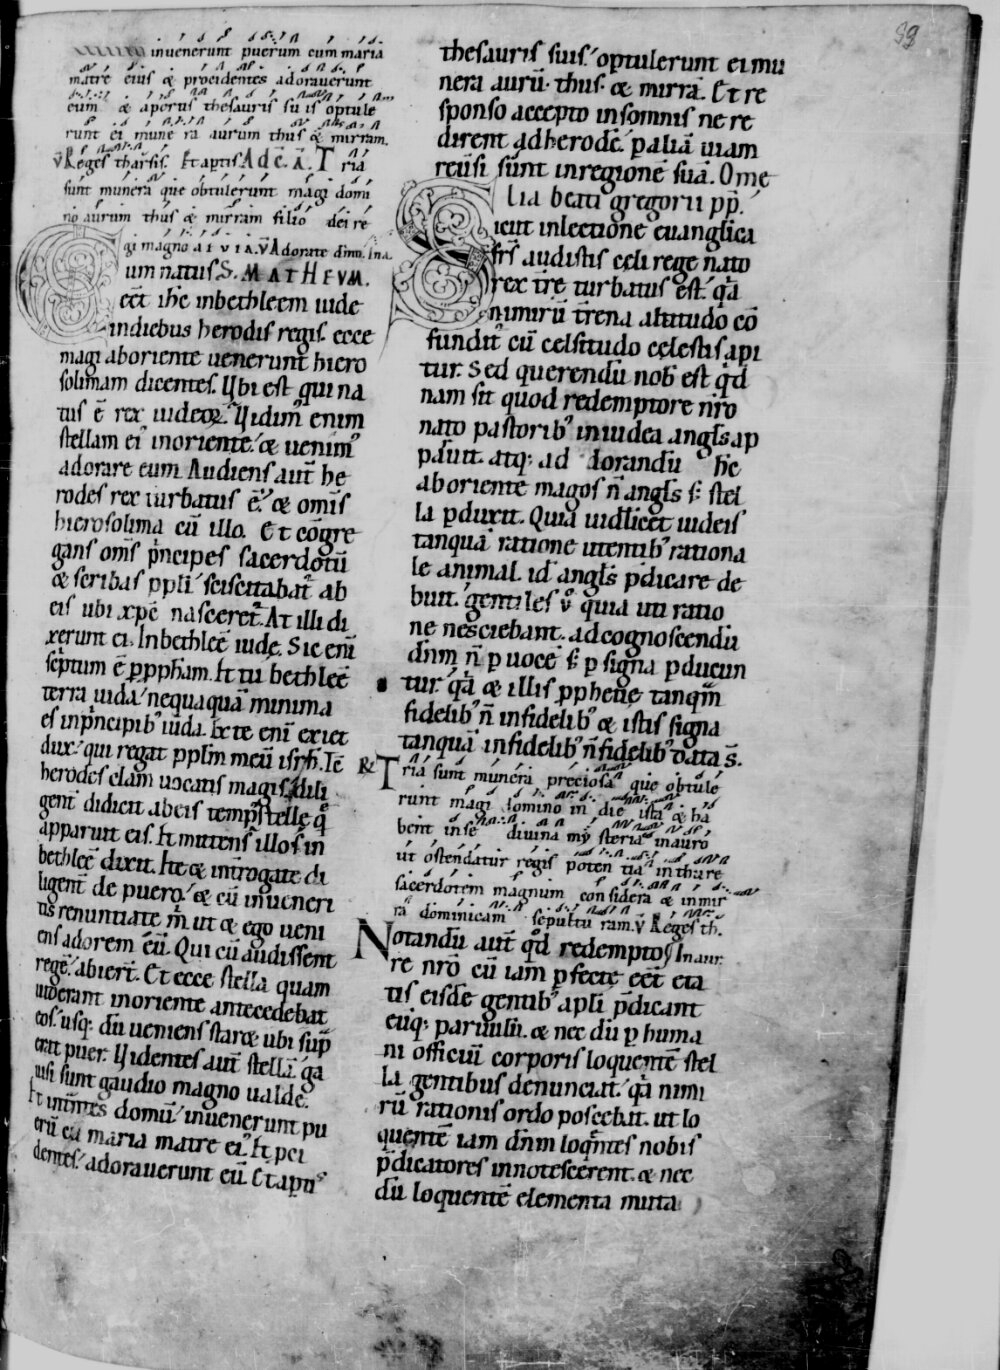 inuenerunt puerum cum maria
matre eius & procidentes adorauerunt
eum & apertis thesauris su is optule
runt ei mune ra aurum thus & mirram.
V Reges tharsis. Et aptis Ad c. A. Tria
sunt munera que obtulerunt magi domi
no aurum thus & mirram filio dei re
gi magno aeuia. V Adorate dnm. In a
Cum natus S. MATHEUM.
eēt ihc inbethleem iude
indiebus herodis regis. ecce
magi aboriente uenerunt hiero
solimam dicentes. Ubi est qui na
tus ē rex iudeoꝝ. Uidimꝰ enim
stellam eiꝰ inoriente. & uenimꝰ
adorare eum. Audiens aut̄ he
rodes rex turbatus ē. & om̄s
hierosolima cū illo. Et cōgre
gans om̄s p̄ncipes sacerdotū
& scribas ppli sciscitabat̄ ab
eis ubi xpc nasceret̄. At illi di
xerunt ei. Inbethleē iude. Sic eni
scptum ē p pph̄am. Et tu bethleē
terra iuda nequaquā minima
es inp̄ncipibꝰ iuda. Ex te eni exiet
dux qui regat pplm meū isrl̄. Tc̄
herodes clam uocatis magis dili
gent̄ didicit abeis temp̄ stelle q̄
apparuit eis. Et mittens illos in
bethleē dixit. Ite & int̄rogate di
ligent̄ de puero. & cū inueneri
tis renuntiate m̄ ut & ego ueni
ens adorem eū. Qui cū audissent
regē abiert̄. Et ecce stella quam
uiderant inoriente antecedebat
eos. usq; dū ueniens star& ubi sup̄
erat puer. Uidentes aut̄ stellā ga
uisi sunt gaudio magno ualde.
Et int̄ntes domū inuenerunt pu
erū cū maria matre eiꝰ. Et pci
dentes adorauerunt eū. Et aptis
thesauris suis optulerunt ei mu
nera aurū. thus. & mirrā. Et re
sponso accepto insomnis ne re
dirent adherodē. p aliā uiam
reūsi sunt inregionē suā. Ome
lia beati gregorii pp.
Sicut inlectione euanglica
frs audistis celi rege nato
rex tr̄e turbatus est. qa
nimirū tr̄ena altitudo cō
fundit̄ cū celsitudo celestis api
tur. Sed querendū nob̄ est qd
nam sit quod redemptore nr̄o
nato pastoribꝰ iniudea angls ap
paruit. atq; ad dorandū hc
aboriente magos n̄ angls s; stel
la pduxit. Quia uidlicet iudeis
tanquā ratione utentibꝰ rationa
le animal. id angls p̄dicare de
buit. gentiles u̇ quia uti ratio
ne nesciebant. adcognoscendū
dnm n̄ p uocē s; p signa pducun
tur. qa & illis pphetie tanqm
fidelibꝰ n̄ infidelibꝰ & istis signa
tanquā infidelibꝰ n̄ fidelibꝰ data s̄.
R Tria sunt munera preciosa que obtule
runt magi domino in die ista & ha
bent inse diuina my steria inauro
ut ostendatur regis poten tia inthure
sacerdotem magnum con sidera & inmir
ra dominicam sepultu ram. V Reges th.
Notandū aut̄ qd redemptor Inaur.
re nr̄o cū iam pfecte eēt eta
tis eisdē gentibꝰ apli p̄dicant
eūq; paruulū. & nec dū p huma
ni officiū corporis loquentē stel
la gentibus denunciat. qa nimi
rū rationis ordo poscebat. ut lo
quentē iam dnm loq̄ntes nobis
p̄dicatores innotescerent. & nec
dū loquentē elementa muta